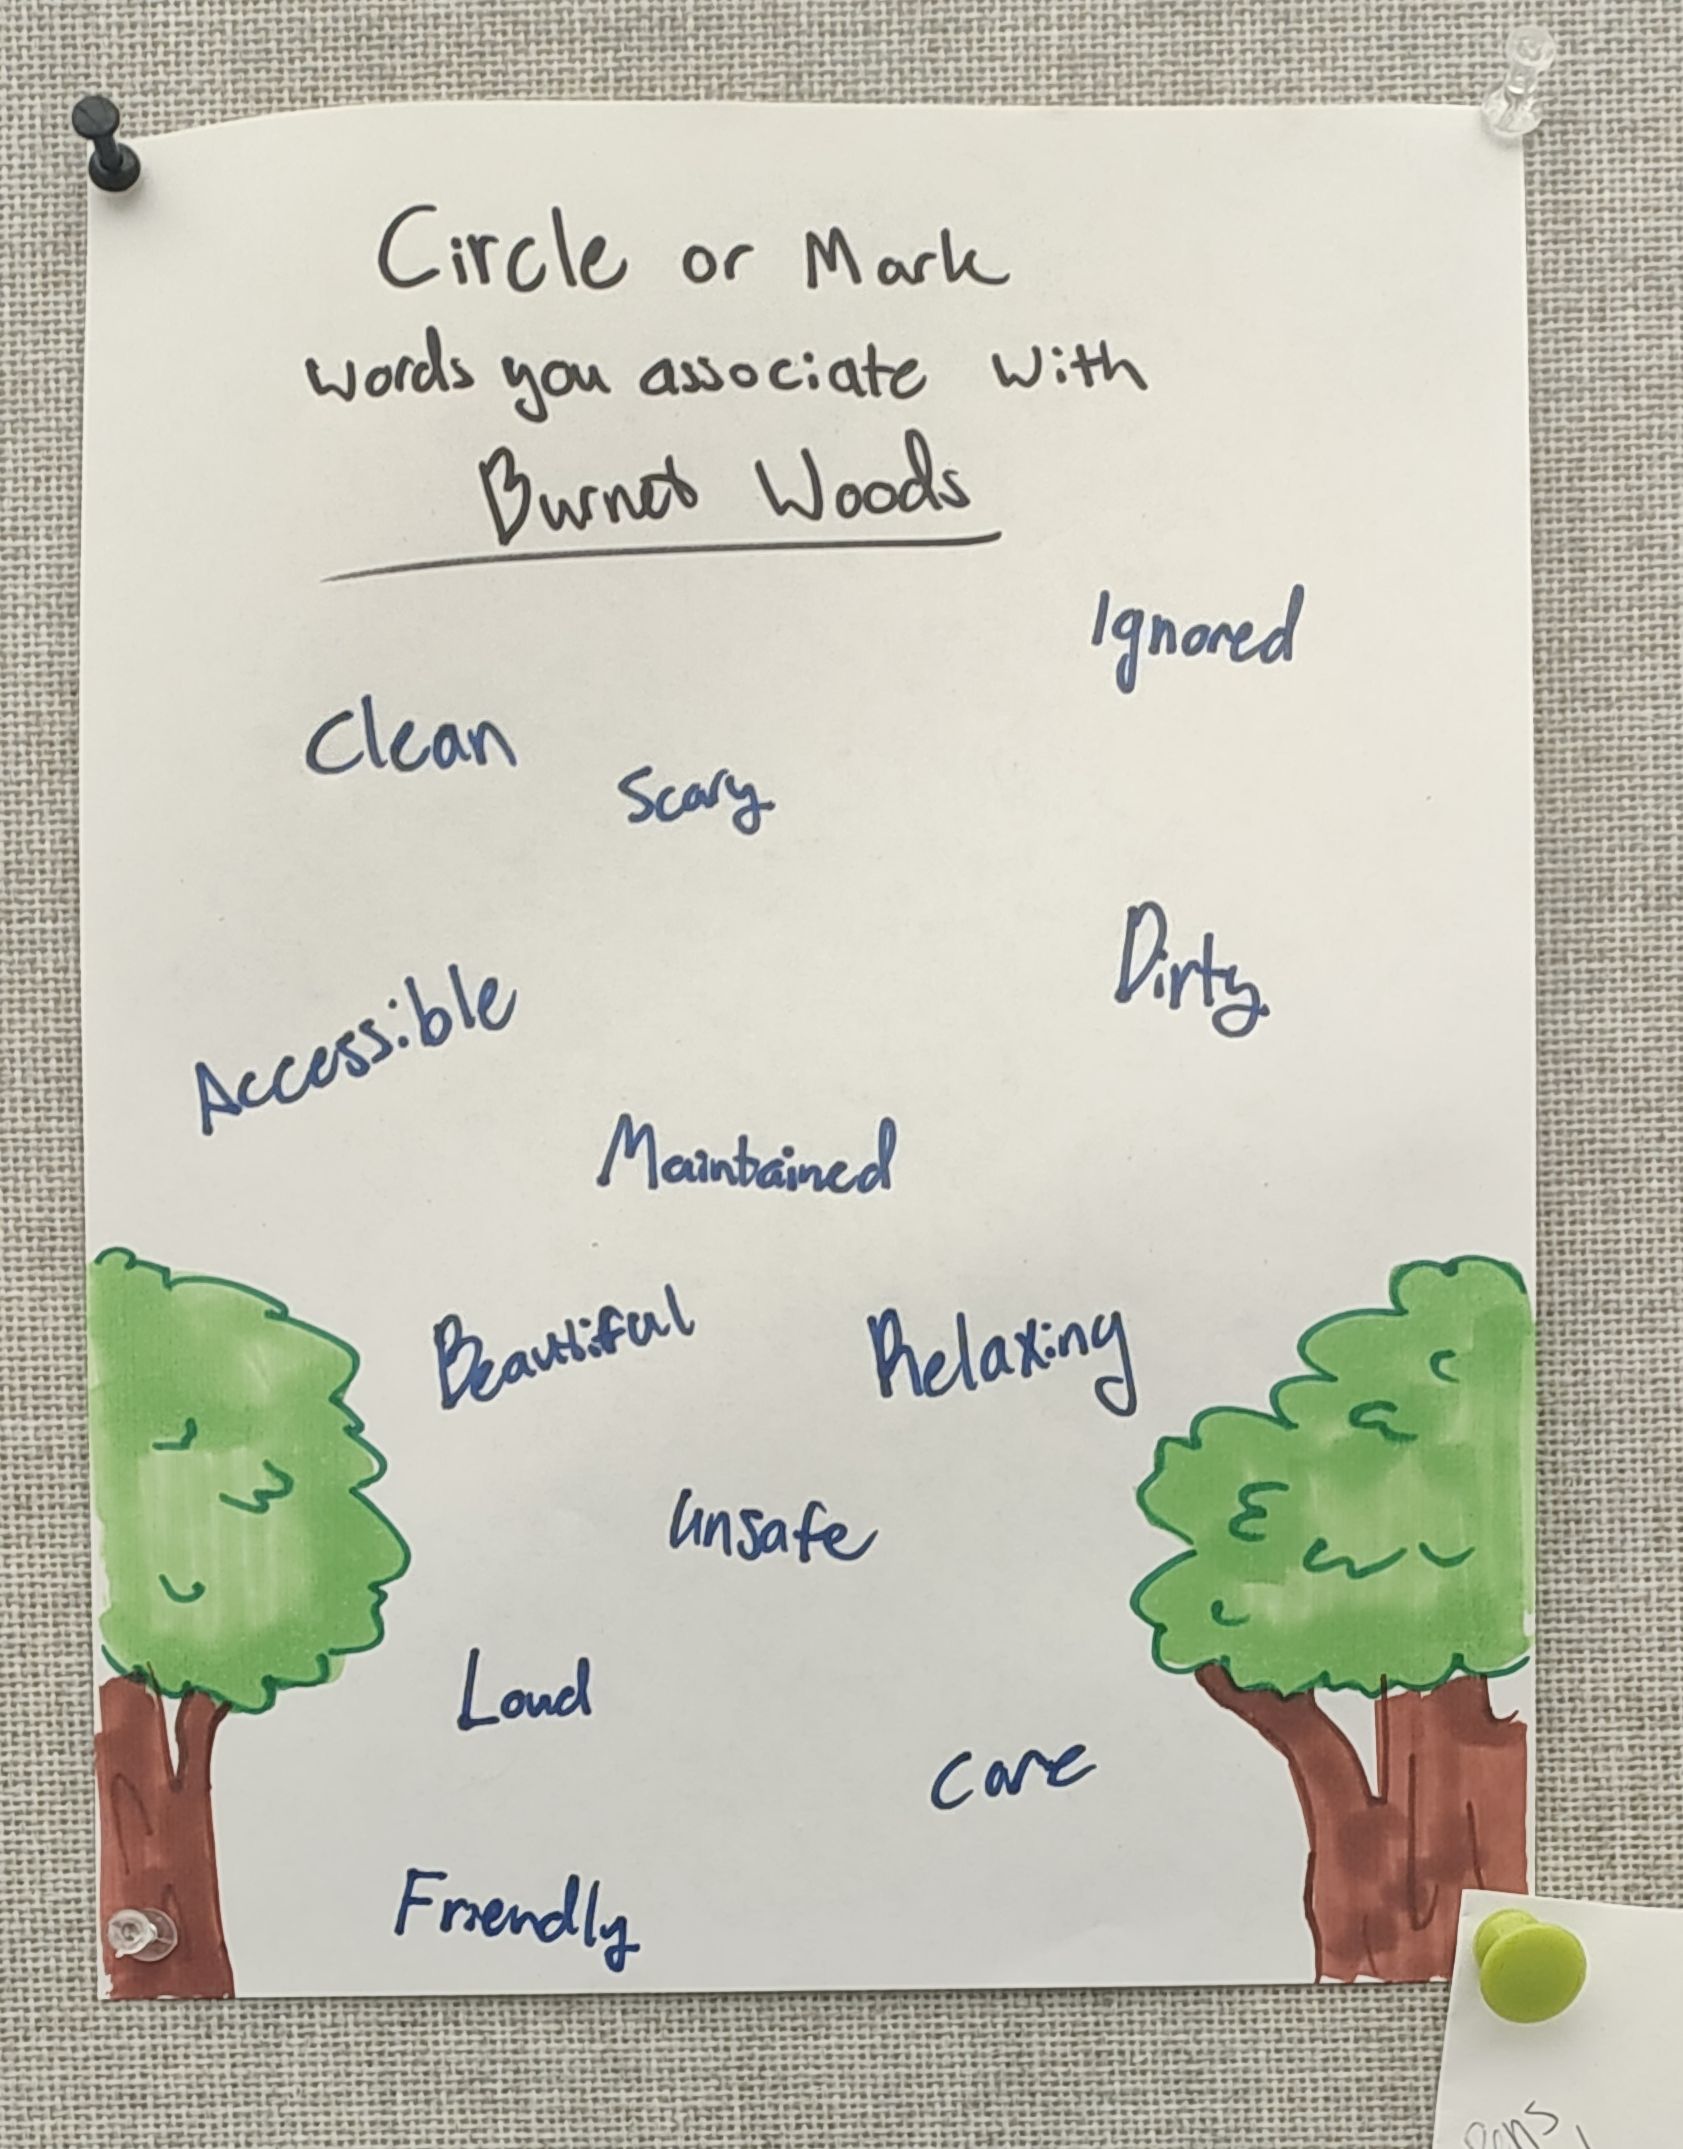 Circle or Mark
words you associate with
Burnet Woods
Ignored
Clean
Scary
Dirty
Accessible
Maintained
Beautiful
Relaxing
Unsafe
Loud
Care
Friendly